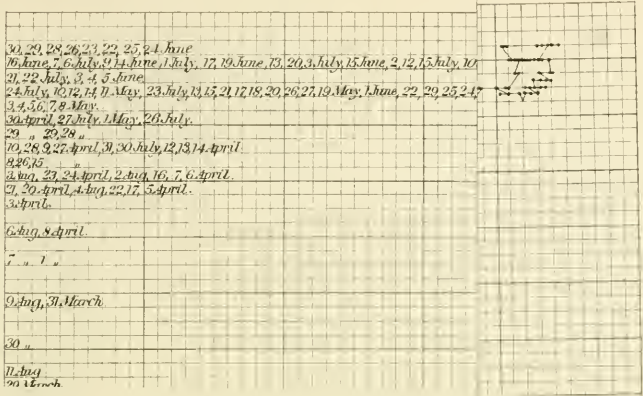 30, 29, 28, 26, 23, 22, 25, 24 June
16 June, 7, 6 July, 9, 14 June, 1 July, 17, 19 June, 13, 20, 3 July, 15 June, 2, 12, 15 July, 10
21, 22 July, 3, 4, 5 June
24 July, 10, 12, 14, 11 May, 23 July, 13, 15, 21, 17, 18, 20, 26, 27, 19 May, 1 June, 22, 29, 25, 24,
3, 4, 5, 6, 7, 8 May.
30 April, 27 July, 1 May, 26 July.
29 „ 29, 28 „
10, 28, 9, 27 April, 31, 30 July, 12, 13, 14 April
8, 26, 15 „
3 Aug, 23, 24 April, 2 Aug, 16, 7, 6 April.
21, 20 April, 4 Aug, 22, 17, 5 April.
3 April.
6 Aug, 8 April.
7 „ 1 „
9 Aug, 31 March
30 „
11 Aug
29 March